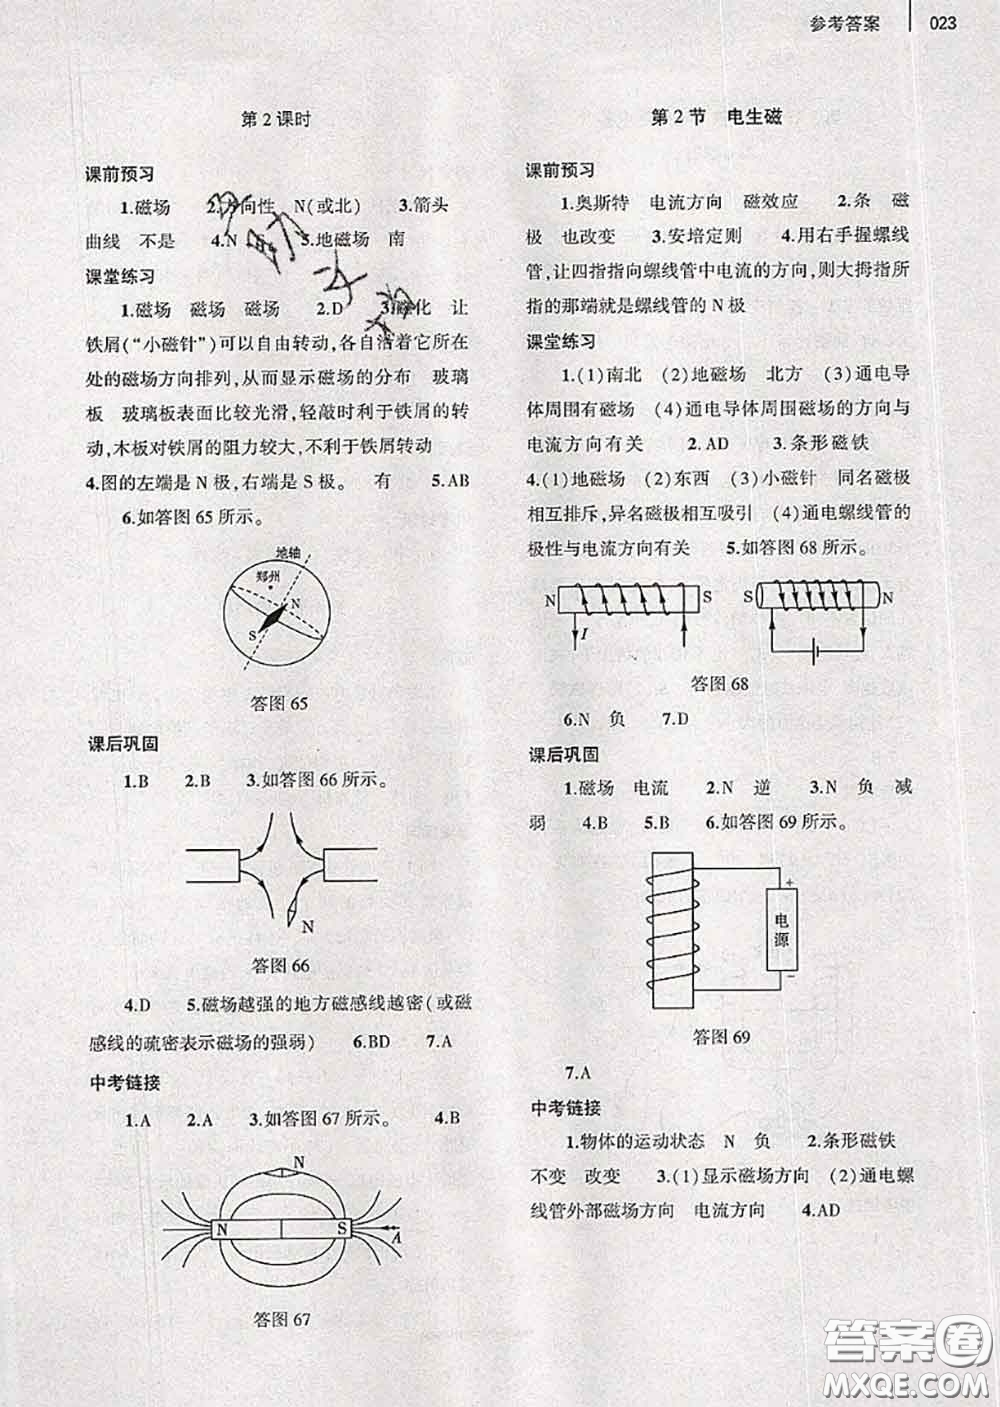 参考答案 023
第2课时
课前预习
1.磁场 2.方向性 N(或北) 3.箭头
曲线 不是 4.N 5.地磁场 南
课堂练习
1.磁场 磁场 磁场 2.D 3.磁化 让
铁屑(“小磁针”)可以自由转动,各自沿着它所在
处的磁场方向排列,从而显示磁场的分布 玻璃
板 玻璃板表面比较光滑,轻敲时利于铁屑的转
动,木板对铁屑的阻力较大,不利于铁屑转动
4.图的左端是N极,右端是S极。 有 5.AB
6.如答图65所示。
地轴
郑州
N
S
答图65
课后巩固
1.B 2.B 3.如答图66所示。
N
答图66
4.D 5.磁场越强的地方磁感线越密(或磁
感线的疏密表示磁场的强弱) 6.BD 7.A
中考链接
1.A 2.A 3.如答图67所示。 4.B
N
N S A
答图67
第2节 电生磁
课前预习
1.奥斯特 电流方向 磁效应 2.条 磁
极 也改变 3.安培定则 4.用右手握螺线
管,让四指指向螺线管中电流的方向,则大拇指所
指的那端就是螺线管的N极
课堂练习
1.(1)南北 (2)地磁场 北方 (3)通电导
体周围有磁场 (4)通电导体周围磁场的方向与
电流方向有关 2.AD 3.条形磁铁
4.(1)地磁场 (2)东西 (3)小磁针 同名磁极
相互排斥,异名磁极相互吸引 (4)通电螺线管的
极性与电流方向有关 5.如答图68所示。
N S S N
I
答图68
6.N 负 7.D
课后巩固
1.磁场 电流 2.N 逆 3.N 负 减
弱 4.B 5.B 6.如答图69所示。
+
电
源
−
答图69
7.A
中考链接
1.物体的运动状态 N 负 2.条形磁铁
不变 改变 3.(1)显示磁场方向 (2)通电螺
线管外部磁场方向 电流方向 4.AD
答案圈
MXQE.COM